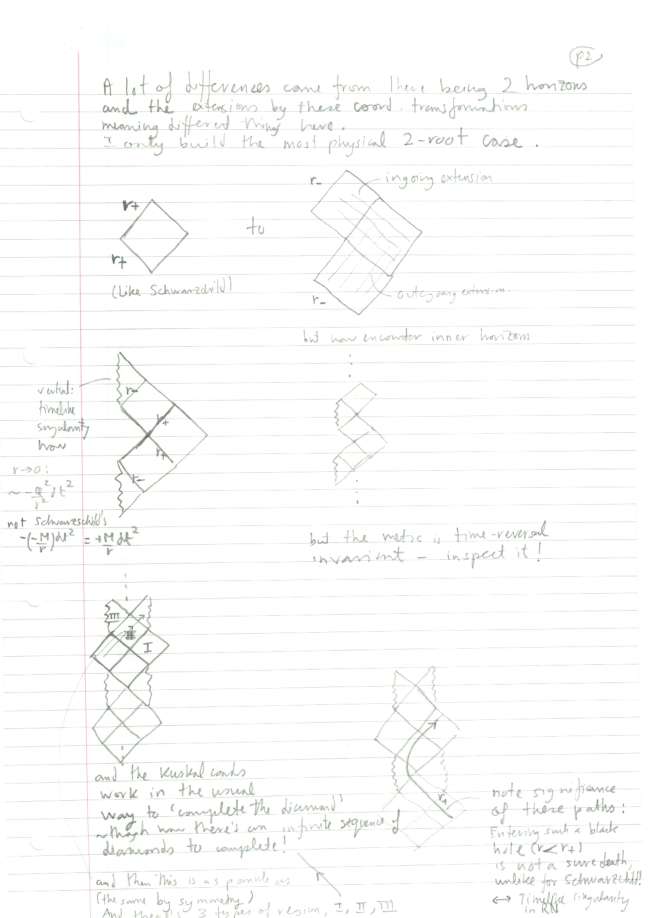 p2
A lot of differences come from there being 2 horizons
and the extensions by these coord. transformations
meaning different things here.
I only build the most physical 2-root case.
r-
ingoing extension
r+
to
r+
(Like Schwarzschild)
r-
outgoing extension
but now encounter inner horizons
vertical:
timelike
singularity
now
r-
r+
r+
r-
r→0:
~ -Q²/r² dt²
not Schwarzschild's
-(-M/r)dt² = +M/r dt²
but the metric is time-reversal
invariant – inspect it!
III
II
I
and the Kuskal coords
work in the usual
way to 'complete the diamond'
though now there's an infinite sequence of
diamonds to complete!
r+
note significance
of these paths:
Entering such a black
hole (r<r+)
is not a sure death,
unlike for Schwarzschild!
↔ Timelike singularity
in RN
and then this is as possible as
(the same by symmetry)
And there's 3 types of region, I, II, III